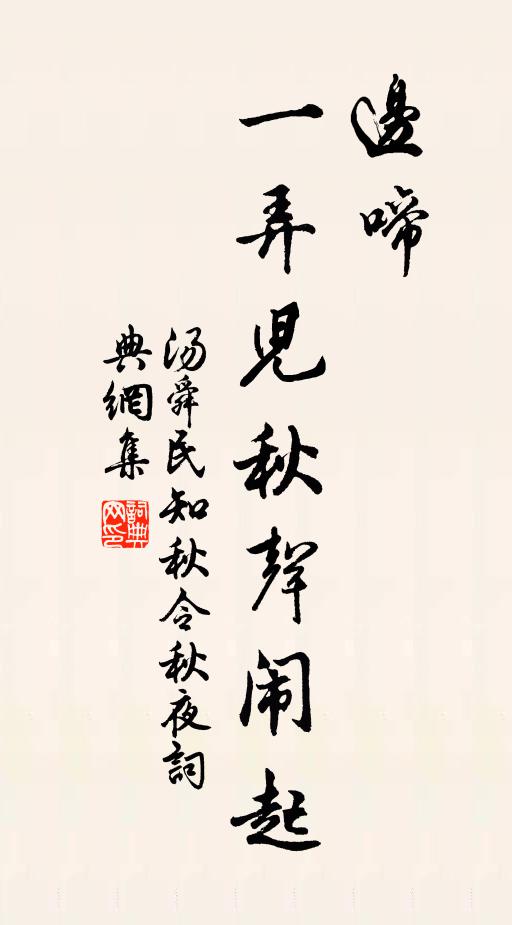 邊啼
一弄児秋聲闹起
汤舜民知秋令秋夜詞
典網集
詞典网印